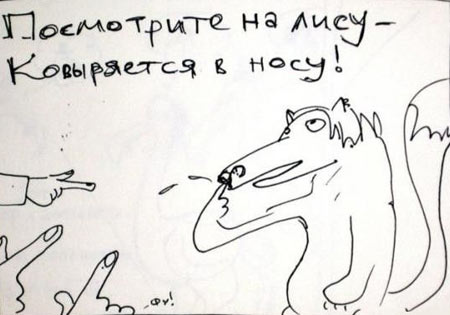 Посмотрите на лису –
Ковыряется в носу!
- Фу!